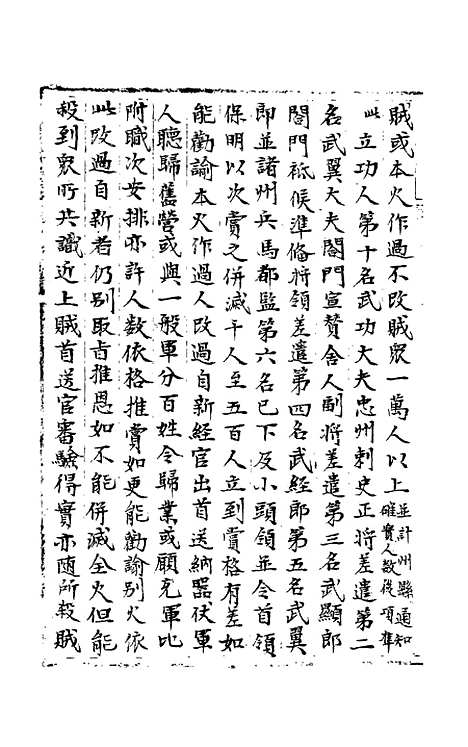 賊或本火作過不改賊衆一萬人以上並計州縣通知確實人数後項準
此立功人第十名武功大夫忠州刺史正将差遣第二
名武翼大夫閤門宣賛舍人副將差遣第三名武顯郎
閤門祗候準俻將領差遣第四名武經郎第五名武翼
郎並諸州兵馬都監第六名已下及小頭領並令首領
保明以次賞之併滅千人至五百人立到賞格有差如
能勸諭本火作過人改過自新經官出首送納器仗軍
人聽歸舊營或與一般軍分百姓令歸業或願充軍比
附職次安排亦許人数依格推賞如更能勸諭別火依
此改過自新者仍別取㫖推恩如不能併滅全火但能
殺到衆所共識近上賊首送官審驗得實亦随所殺賊